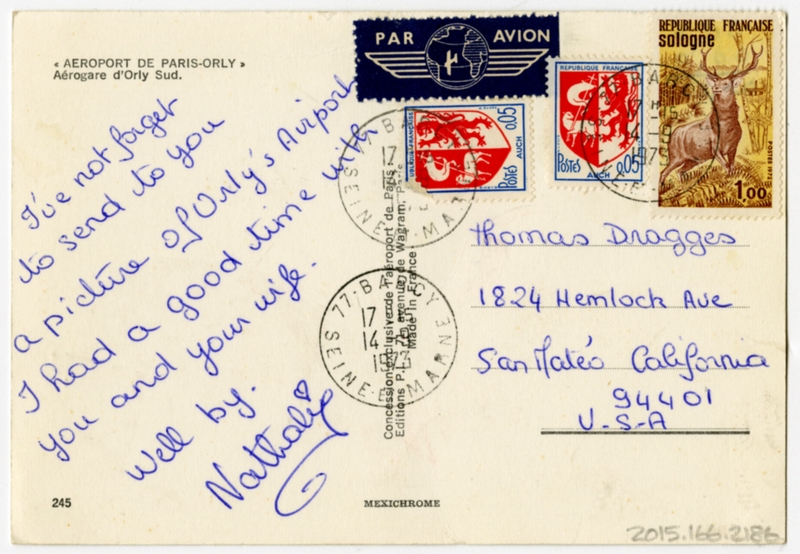 « AEROPORT DE PARIS-ORLY »
Aérogare d'Orly Sud.
I've not forget
to send to you
a picture of Orly's Airport
I had a good time with
you and your wife.
Well by.
Nathalie
245
MEXICHROME
Concession exclusive de l'aéroport de Paris
Editions P.I. avenue de Wagram, Paris
Made in France
PAR AVION
REPUBLIQUE FRANÇAISE
0,05
POSTES AUCH
REPUBLIQUE FRANÇAISE
POSTES AUCH 0,05
REPUBLIQUE FRANÇAISE
sologne
1.00
77-BARCY
17 H
14-9
1973
SEINE-ET-MARNE
77-BARCY
17
14
SEINE-ET-MARNE
Thomas Dragges
1824 Hemlock Ave
San Mateó California
94401
U-S-A
2015.166.2186